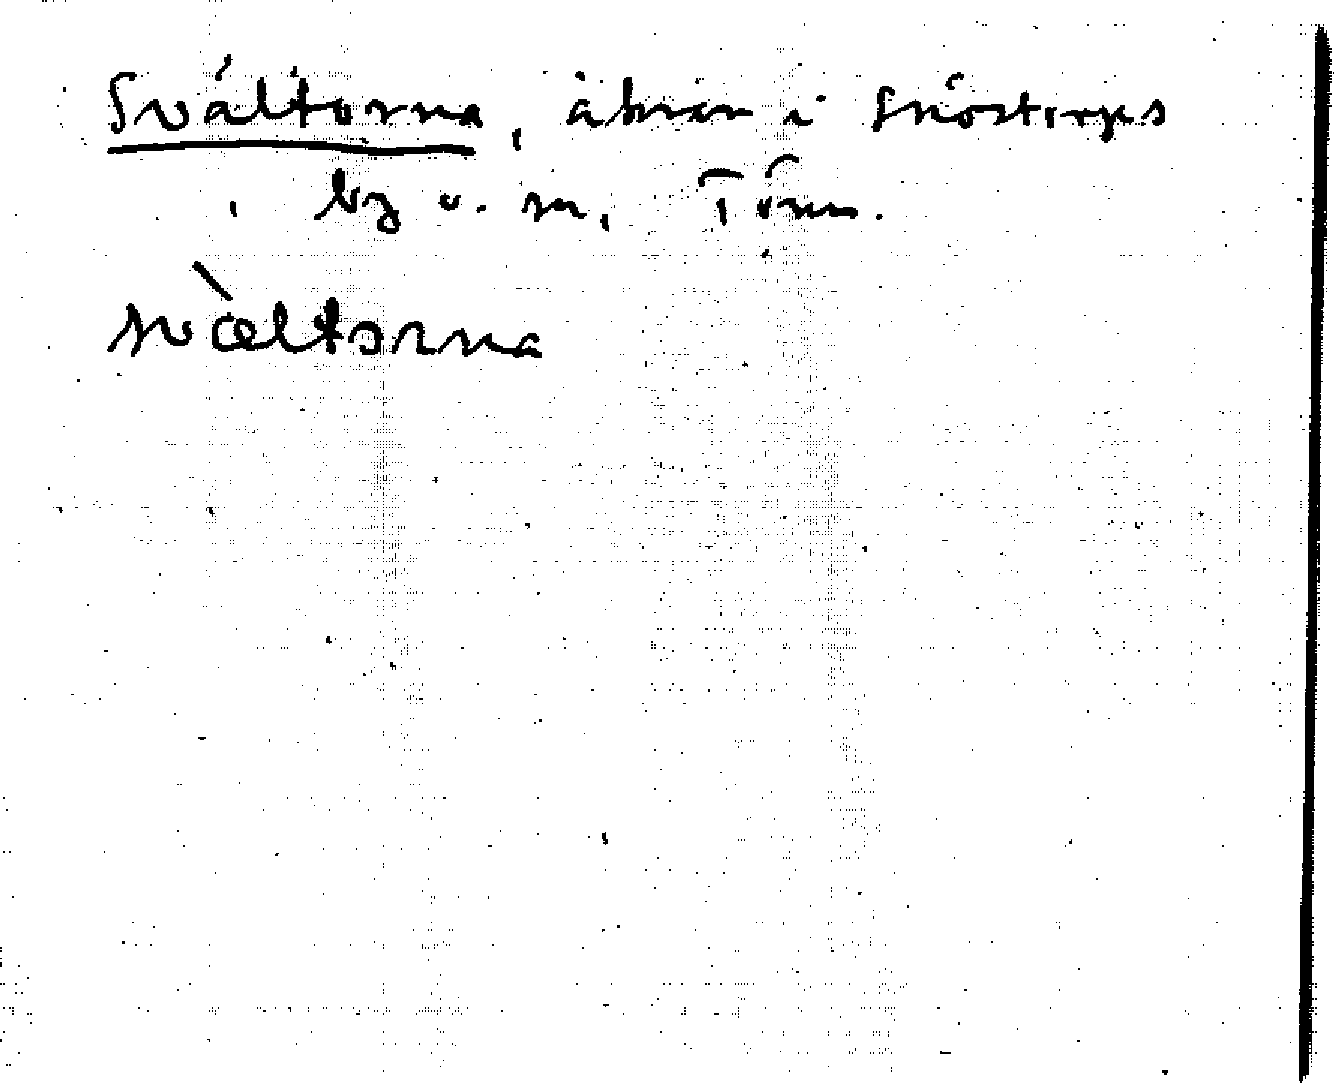 Svältorna, åkrar i Snöstorps
by o. m. Tönn.
svàltorna